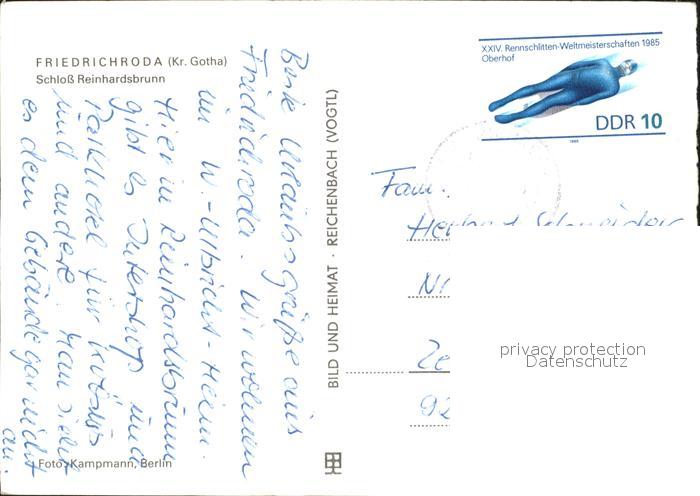 FRIEDRICHRODA (Kr. Gotha)
Schloß Reinhardsbrunn
Beste Urlaubsgrüße aus
Friedrichroda. Wir wohnen
im W.-Ulbricht-Heim.
Hier in Reinhardsbrunn
gibt es Intershop und
Parkhotel für
und andere. Man sieht
es dem Gebäude gar nicht
an.
Foto: Kampmann, Berlin
BILD UND HEIMAT · REICHENBACH (VOGTL)
XXIV. Rennschlitten-Weltmeisterschaften 1985
Oberhof
DDR 10
1985
Fam.
Herbert Schneider
privacy protection
Datenschutz
92